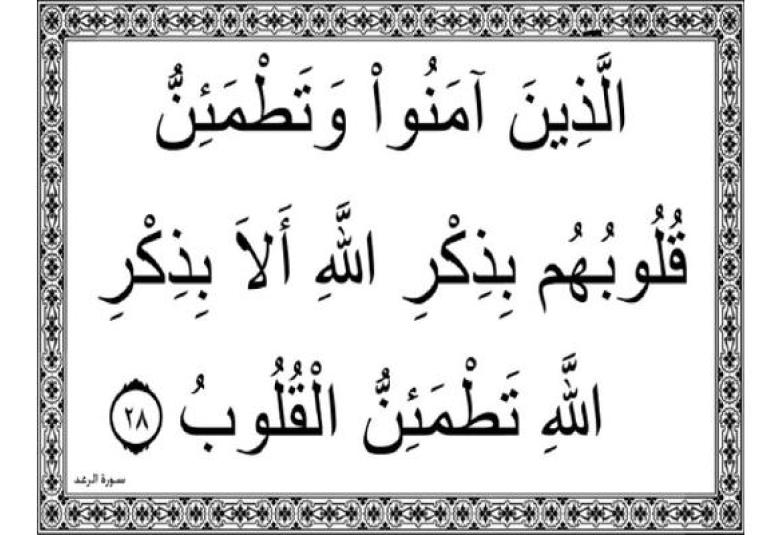 الَّذِينَ آمَنُواْ وَتَطْمَئِنُّ
قُلُوبُهُم بِذِكْرِ اللَّهِ أَلاَ بِذِكْرِ
اللَّهِ تَطْمَئِنُّ الْقُلُوبُ ٢٨
سورة الرعد